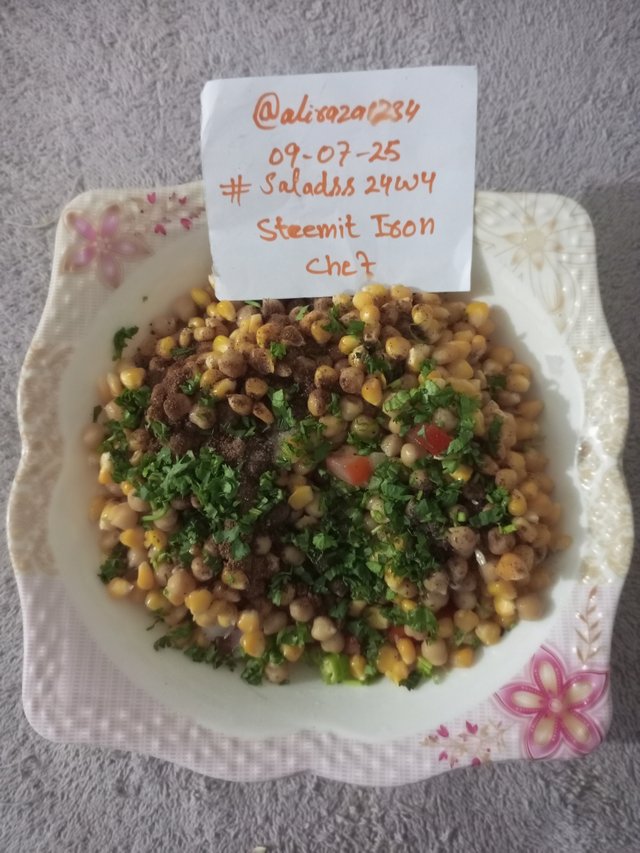 @aliraza1234
09-07-25
# Saladss24w4
Steemit Iron
Chef